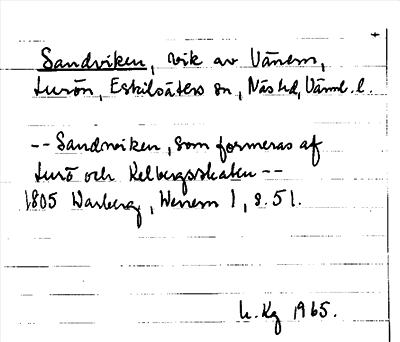 Sandviken, vik av Vänern,
Lurön, Eskilsäters sn, Näs hd, Värml. l.
-- Sandwiken, som formeras af
Lurö och Kelbergsskaten --
1805 Warberg, Wenern 1, s. 51.
1965.